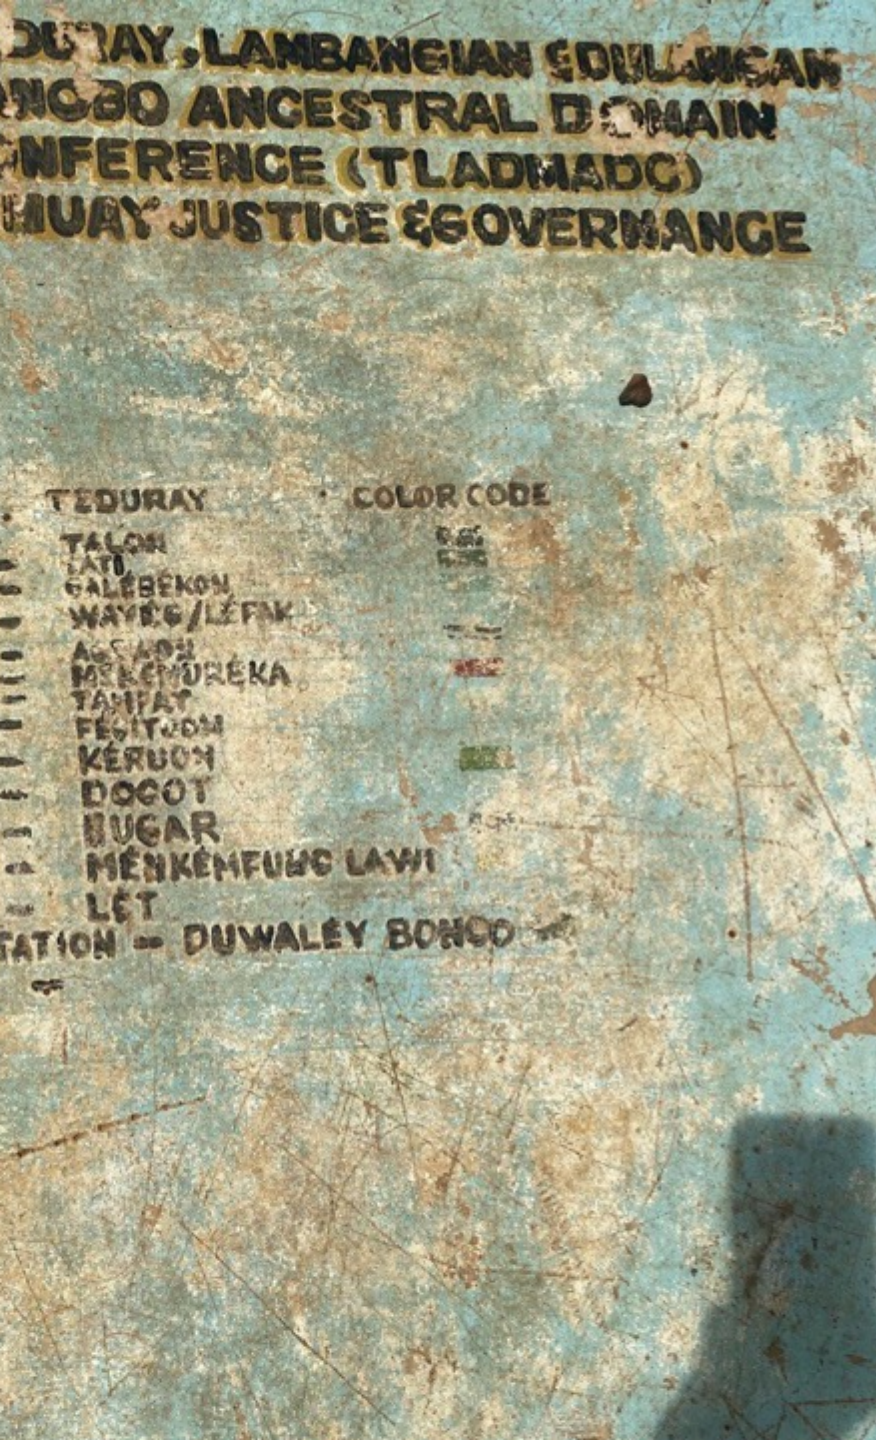 DURAY, LAMBANGIAN & DULANGAN
NOBO ANCESTRAL DOMAIN
NFERENCE (TLADMADC)
JUSTICE & GOVERNANCE
TEDURAY COLOR CODE
TALON
LATI
GALÉBÉKON
WAYEG/LÉFAK
MÉKEMURÉKA
TAMFAT
KÉRUON
DOGOT
BUGAR
MÉNKÉMFUNG LAWI
LÉT
TATION - DUWALÉY BONGO